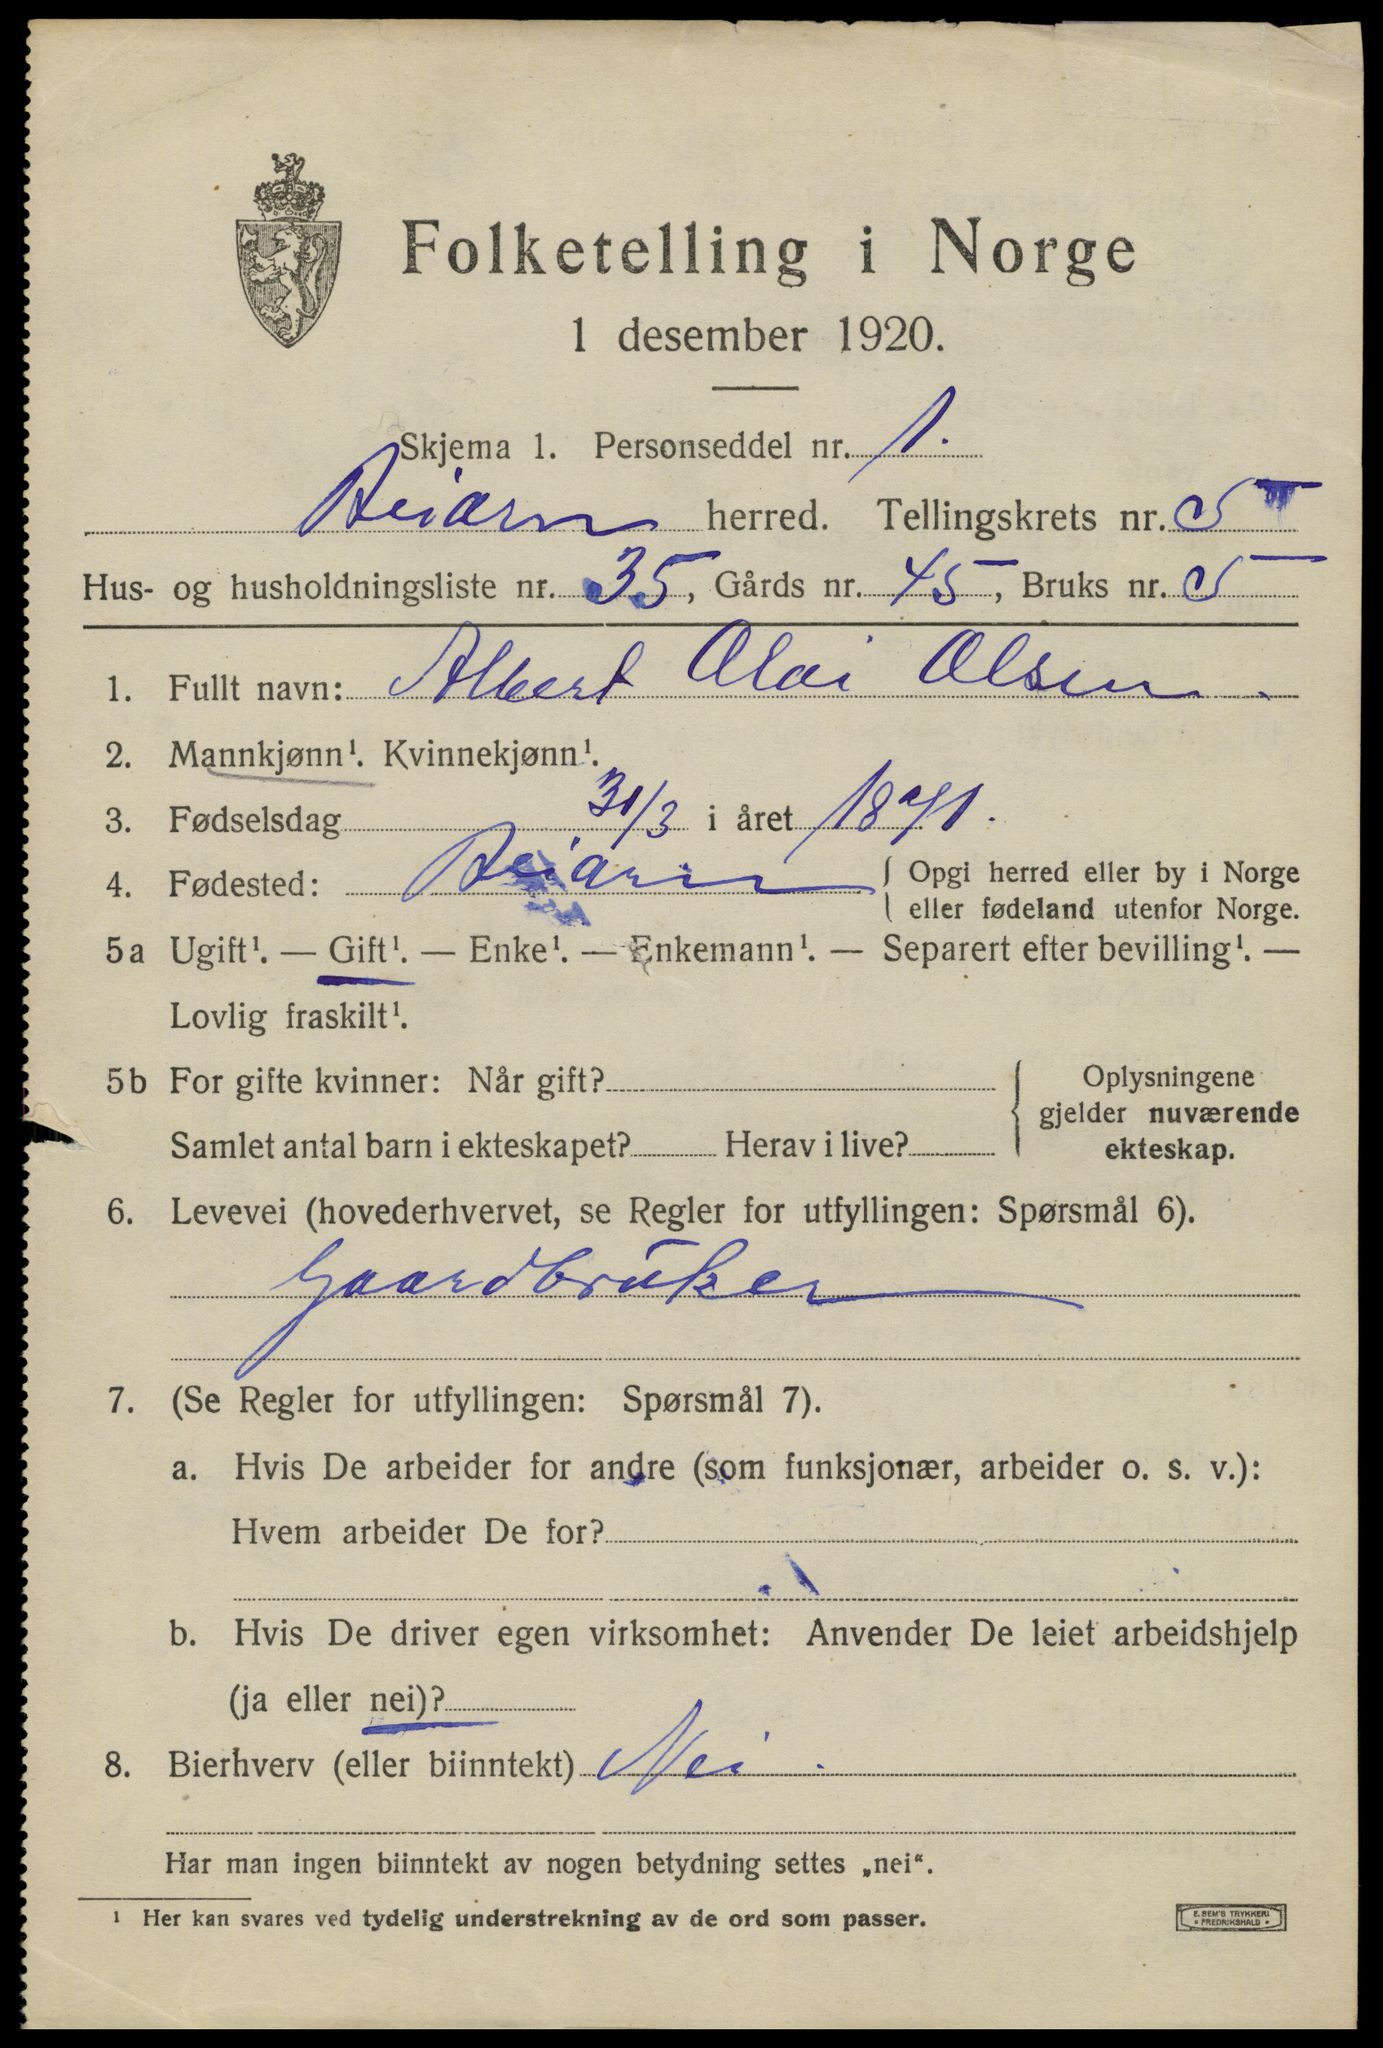 Folketelling i Norge
1 desember 1920.
Skjema 1. Personseddel nr. 1.
Beiarn herred. Tellingskrets nr. 5
Hus- og husholdningsliste nr. 35, Gårds nr. 45, Bruks nr. 5
1. Fullt navn: Albert Olai Olsen.
2. Mannkjønn¹. Kvinnekjønn¹.
3. Fødselsdag 31/3 i året 1871.
4. Fødested: Beiarn { Opgi herred eller by i Norge
eller fødeland utenfor Norge.
5a Ugift¹. — Gift¹. — Enke¹. — Enkemann¹. — Separert efter bevilling¹. —
Lovlig fraskilt¹.
5b For gifte kvinner: Når gift? { Oplysningene
gjelder nuværende
Samlet antal barn i ekteskapet? Herav i live? ekteskap.
6. Levevei (hovederhvervet, se Regler for utfyllingen: Spørsmål 6).
Gaardbrúker
7. (Se Regler for utfyllingen: Spørsmål 7).
a. Hvis De arbeider for andre (som funksjonær, arbeider o. s. v.):
Hvem arbeider De for?
b. Hvis De driver egen virksomhet: Anvender De leiet arbeidshjelp
(ja eller nei)?
8. Bierhverv (eller biinntekt) Nei.
Har man ingen biinntekt av nogen betydning settes „nei“.
¹ Her kan svares ved tydelig understrekning av de ord som passer.
E. SEM'S TRYKKERI
• FREDRIKSHALD •